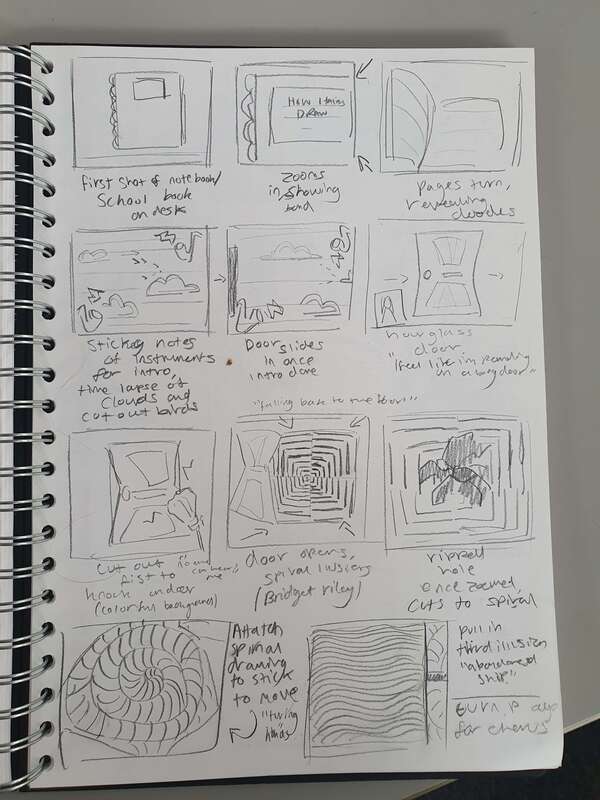 HOW I
DRAW
first shot of notebook/
School book
on desk
Zooms
in showing
pages turn,
revealing
doodles
Sticky notes
of instruments
for intro,
time lapse of
clouds and
cut out birds
Door slides
in once
intro done
hourglass
door
"I feel like im
on a door"
"falling back to the floor"
Cut out
fist to
knock on door
(colorful background)
door opens,
spiral illusions
(Bridget riley)
ripped
hole
once zoomed,
cuts to spiral
Attatch
spiral
drawing
to stick
to move
hands"
pull in
third illusion
"abandoned
ship"
turn page
for chorus